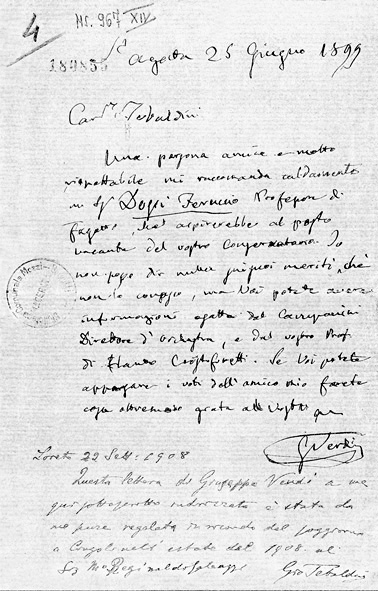 4
Nr. 967 XIV
189855
St agata 25 Giugno 1899
Car.mo Tebaldini
Una persona amica e molto
rispettabile mi raccomanda caldamente
un Sigr Ferruccio Professore di
fagotto che aspirerebbe al posto
vacante del vostro Conservatorio. Io
non posso dir nulla suoi meriti, chè
non lo conosco, ma Voi potete avere
informazioni esatte dal Campanini
Direttore d'orchestra, e dal vostro Prof
di Flauto. Se Voi potete
appagare i voti dell'amico mio farete
cosa oltremodo grata al Vostro
G Verdi
Loreto 22 Sett: 1908
Questa lettera di Giuseppe Verdi a me
qui sottoscritto indirizzata è stata da
me pure regalata in ricordo del soggiorno
a Cingoli nell'estate del 1908 al
Sig Reginaldo
Gio Tebaldini